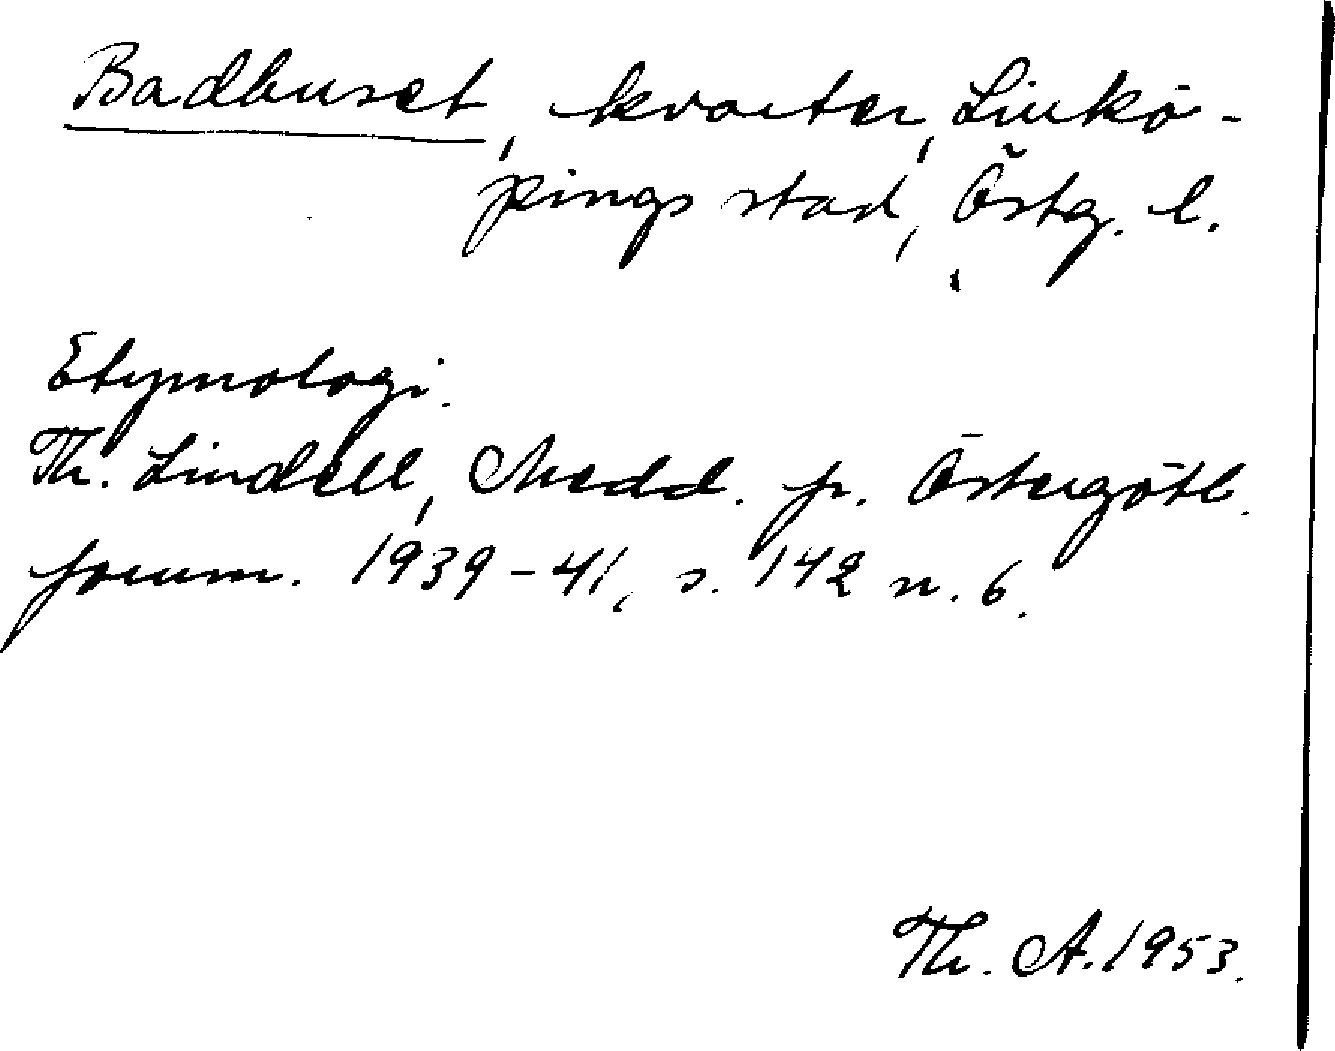 Badhuset, kvarter, Linkö-
pings stad, Östg. l.
Etymologi.
Th. Lindell, Medd. fr. Östergötl.
fornm. 1939-41, s. 142 n. 6.
Th. A. 1953.